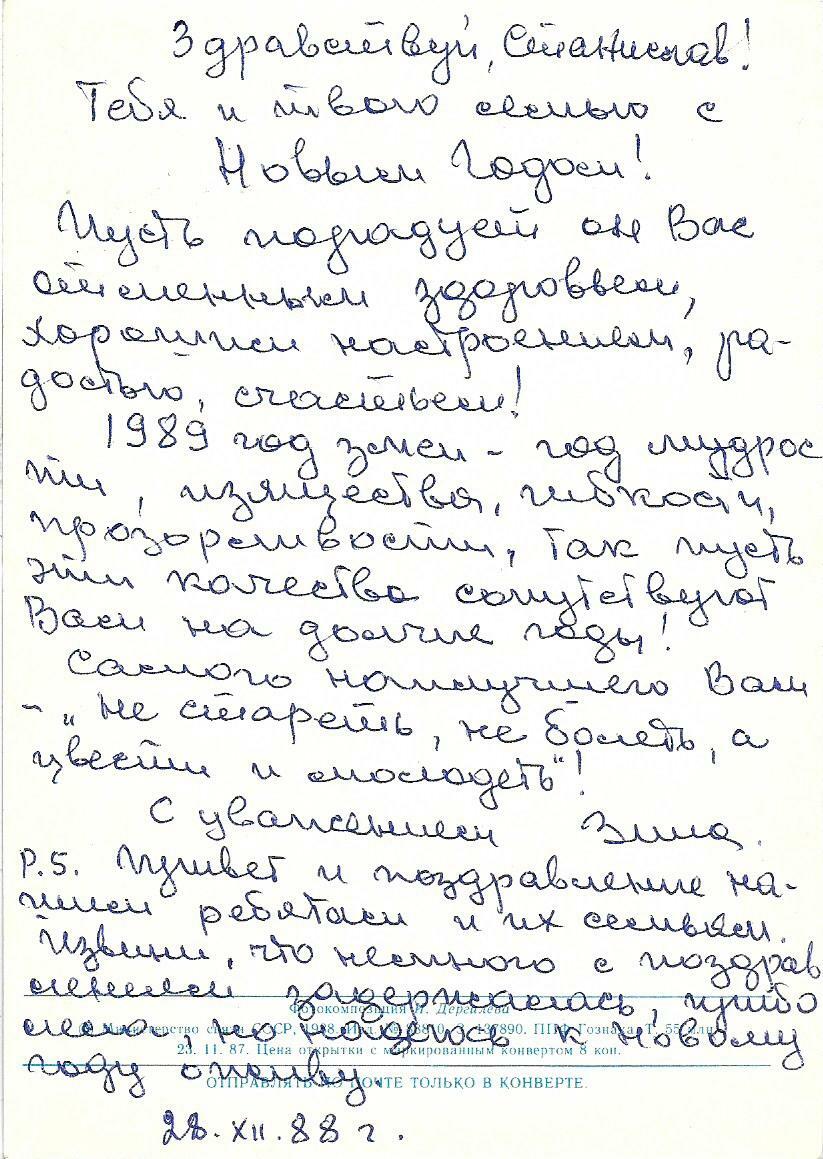 Здравствуй, Станислав!
Тебя и твою семью с
Новым Годом!
Пусть порадует он Вас
отменным здоровьем,
хорошим настроением, ра-
достью, счастьем!
1989 год змеи - год мудрос
ти, изящества, гибкости,
прозорливости, так пусть
эти качества сопутствуют
Вам на долгие годы!
Самого наилучшего Вам
- „не стареть, не болеть, а
цвести и молодеть"!
С уважением Зина.
P.S. Привет и поздравление на-
шим ребятам и их семьям.
Извини, что немного с поздрав
лением задержалась,
но надеюсь к Новому
году оживу.
Фотокомпозиция И. Дергилева
© Министерство связи СССР, 1988. Изд. № 3. 137890. ППФ Гознака. Т. 55 млн.
23. 11. 87. Цена открытки с маркированным конвертом 8 коп.
ОТПРАВЛЯТЬ ПО ПОЧТЕ ТОЛЬКО В КОНВЕРТЕ.
28. XII. 88 г.